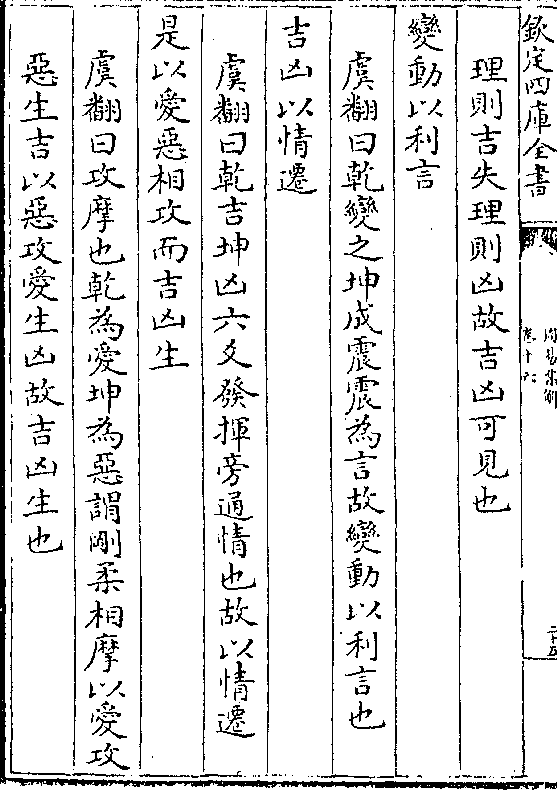 欽定四庫全書
周易集解
卷十六
二十五
理則吉失理則凶故吉凶可見也
變動以利言
虞翻曰乾變之坤成震震為言故變動以利言也
吉凶以情遷
虞翻曰乾吉坤凶六爻發揮旁通情也故以情遷
是以愛惡相攻而吉凶生
虞翻曰攻摩也乾為愛坤為惡謂剛柔相摩以愛攻
惡生吉以惡攻愛生凶故吉凶生也